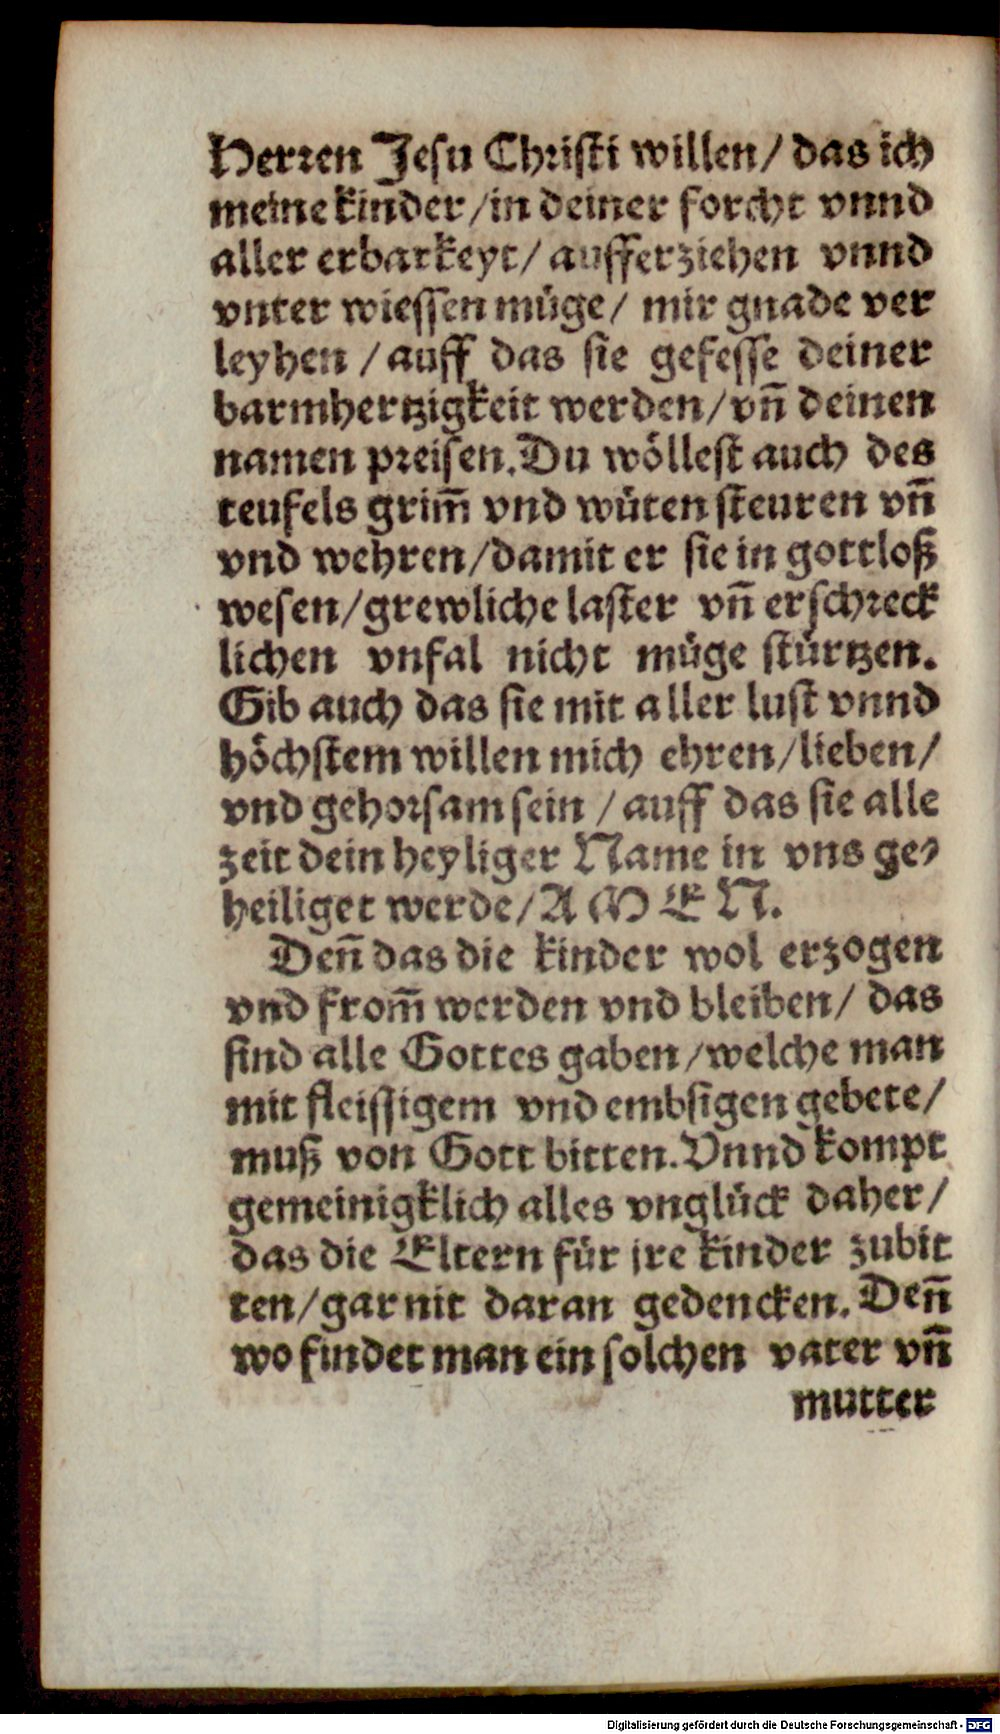 Herren Jesu Christi willen/ das ich
meine kinder/in deiner forcht vnnd
aller erbarkeyt/ aufferziehen vnnd
vnter wiessen müge/ mir gnade ver
leyhen /auff das sie gefesse deiner
barmhertzigkeit werden/vn̄ deinen
namen preisen. Du wöllest auch des
teufels grim̄ vnd wüten steuren vn̄
vnd wehren/damit er sie in gottloß
wesen/grewliche laster vn̄ erschreck
lichen vnfal nicht müge stürtzen.
Gib auch das sie mit aller lust vnnd
höchstem willen mich ehren/lieben/
vnd gehorsam sein /auff das sie alle
zeit dein heyliger Name in vns ge⸗
heiliget werde/ A M E N.
Den̄ das die kinder wol erzogen
vnd from̄ werden vnd bleiben/ das
sind alle Gottes gaben/welche man
mit fleissigem vnd embsigen gebete/
muß von Gott bitten. Vnnd kompt
gemeinigklich alles vnglück daher/
das die Eltern für jre kinder zubit
ten/gar nit daran gedencken. Den̄
wo findet man ein solchen vater vn̄
mutter
Digitalisierung gefördert durch die Deutsche Forschungsgemeinschaft - DFG